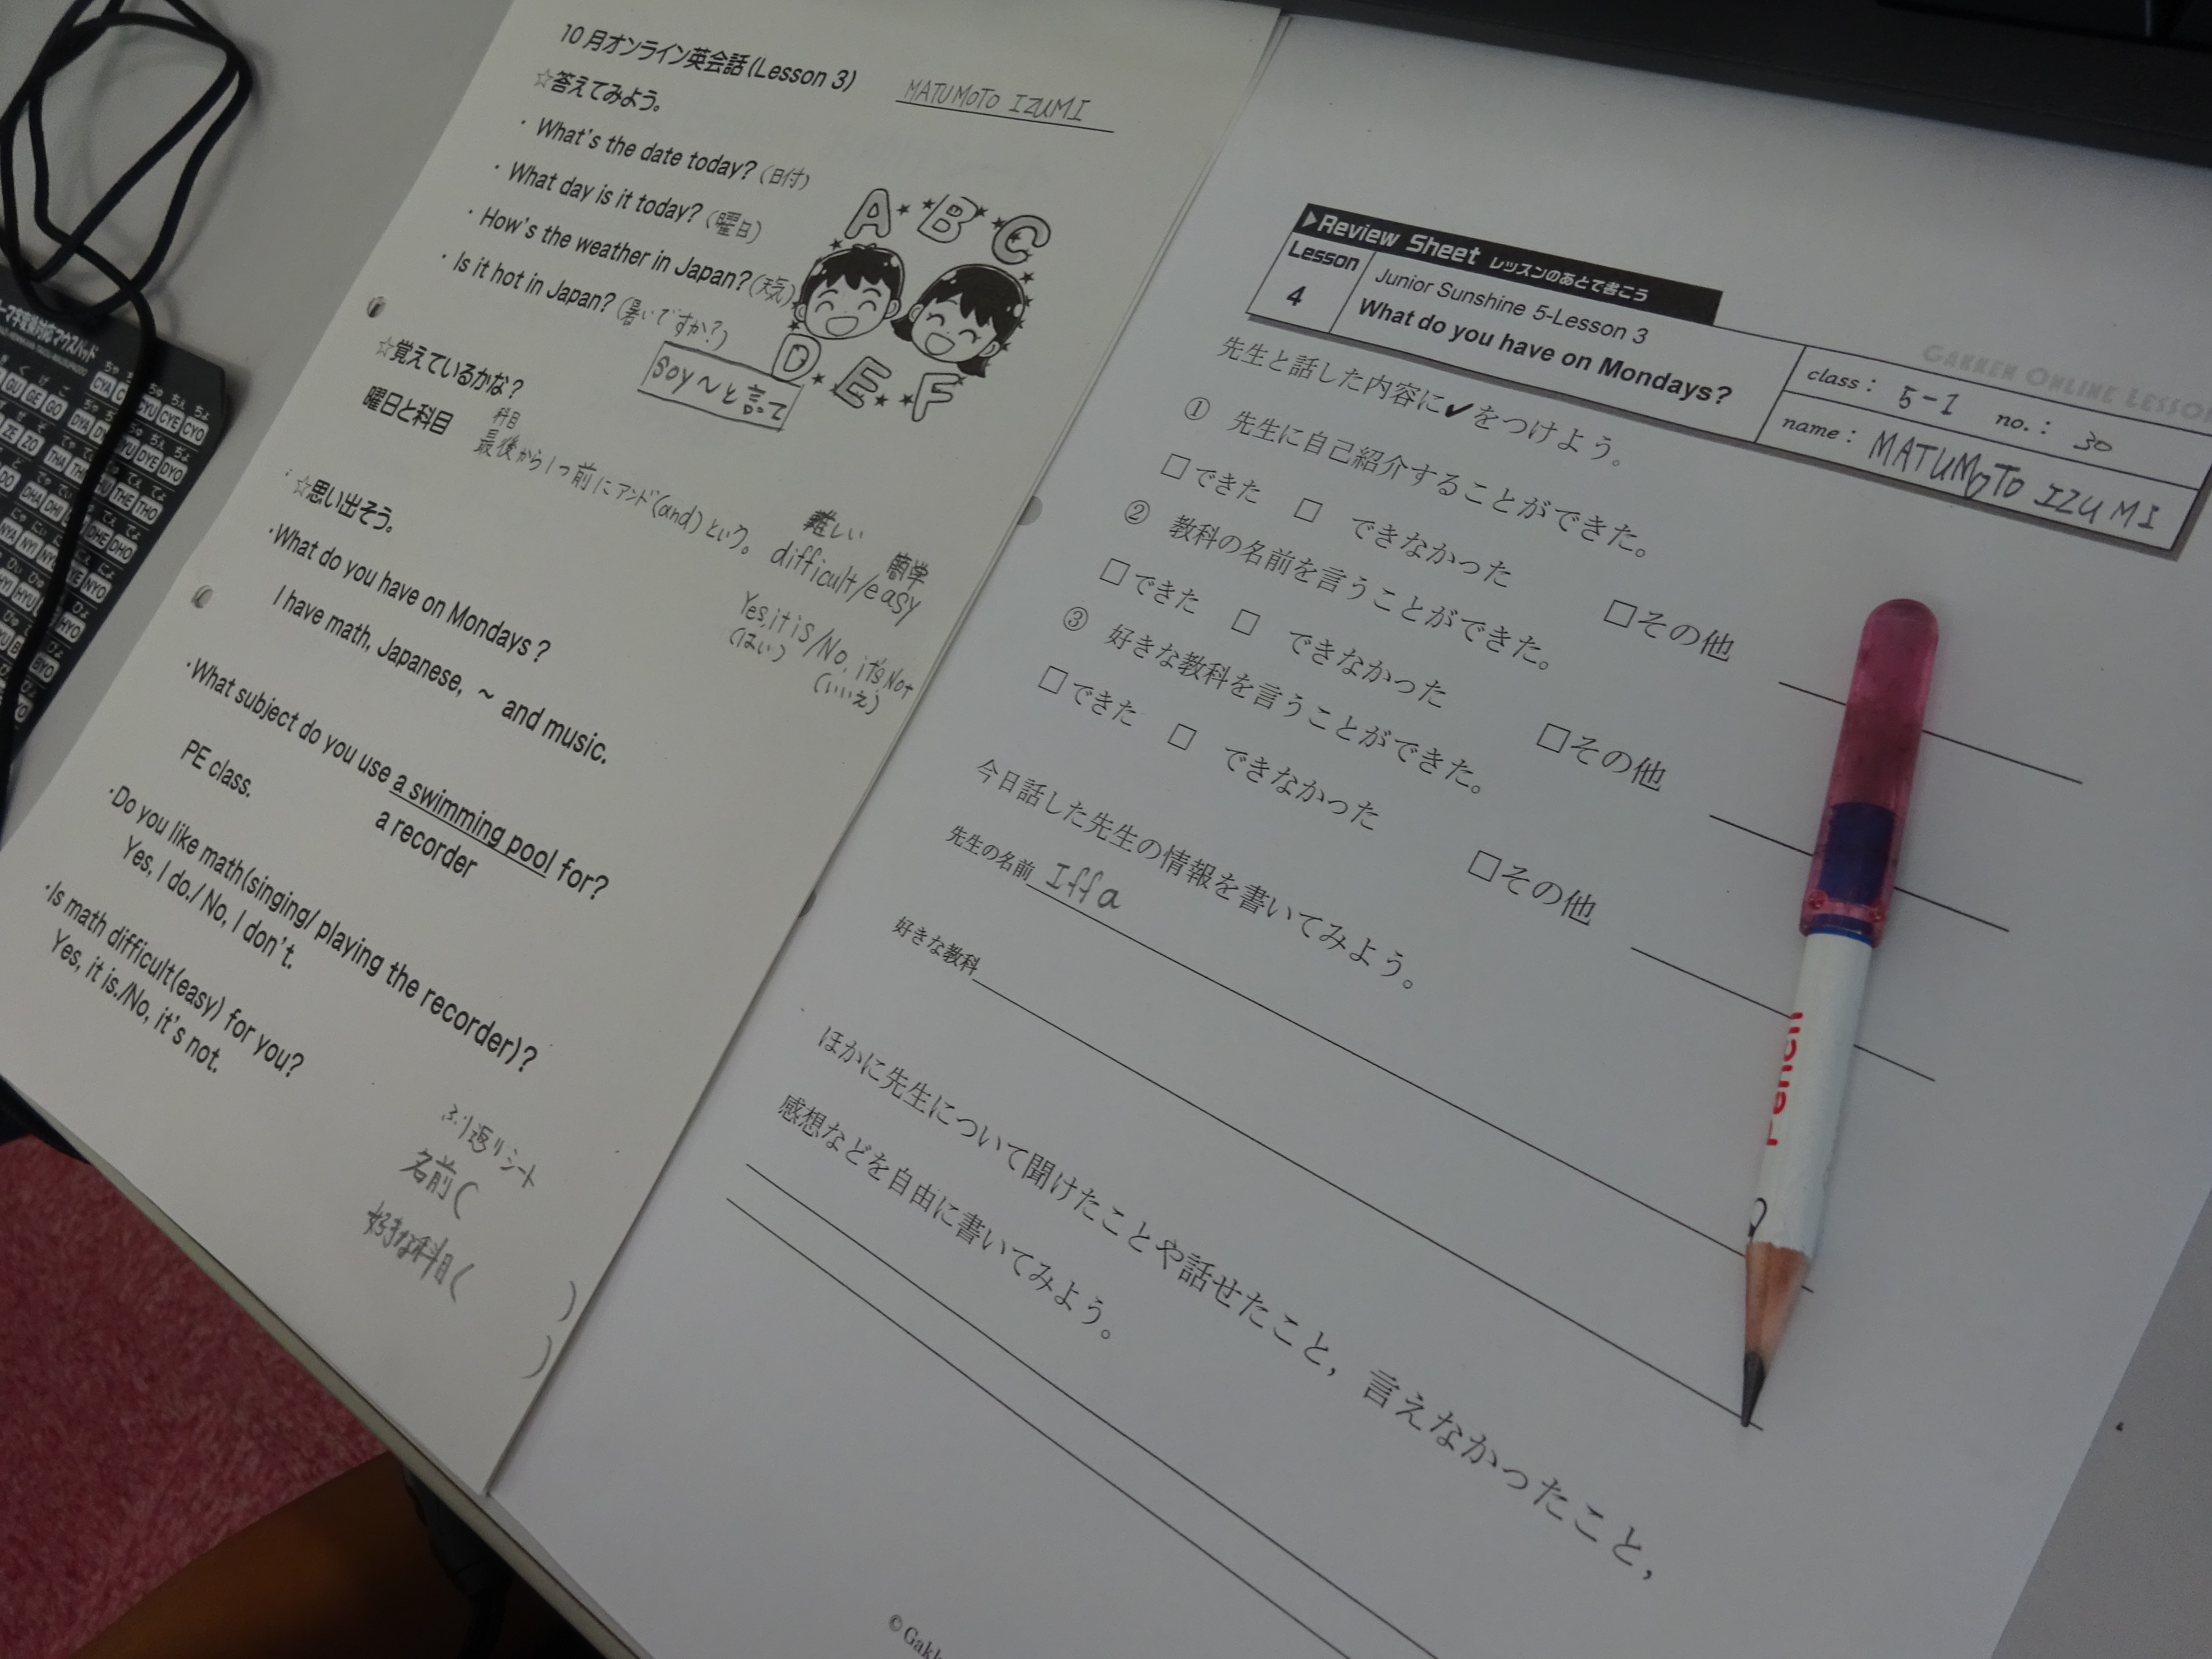 10月オンライン英会話(Lesson 3)
MATUMOTO IZUMI
☆答えてみよう。
・What's the date today?(日付)
・What day is it today?(曜日)
・How's the weather in Japan?(天気)
・Is it hot in Japan?(暑いですか?)
A B C
D E F
☆覚えているかな?
曜日と科目
科目
最後から1つ前にアンド(and)という。
☆思い出そう。
難しい 簡単
difficult/easy
Yes, it is/No, it's Not
(はい) (いいえ)
・What do you have on Mondays?
I have math, Japanese, ~ and music.
・What subject do you use a swimming pool for?
PE class.
a recorder
・Do you like math(singing/ playing the recorder)?
Yes, I do./ No, I don't.
・Is math difficult(easy) for you?
Yes, it is./No, it's not.
ふり返りシート
名前( )
好きな科目( )
▶Review Sheet レッスンのあとで書こう
Lesson 4
Junior Sunshine 5-Lesson 3
What do you have on Mondays?
GAKKEN ONLINE LESSON
class: 5-1 no.: 30
name: MATUMOTO IZUMI
先生と話した内容に✔をつけよう。
① 先生に自己紹介することができた。
□できた □ できなかった □その他
② 教科の名前を言うことができた。
□できた □ できなかった □その他
③ 好きな教科を言うことができた。
□できた □ できなかった □その他
今日話した先生の情報を書いてみよう。
先生の名前 Iffa
好きな教科
ほかに先生について聞けたことや話せたこと，言えなかったこと，
感想などを自由に書いてみよう。